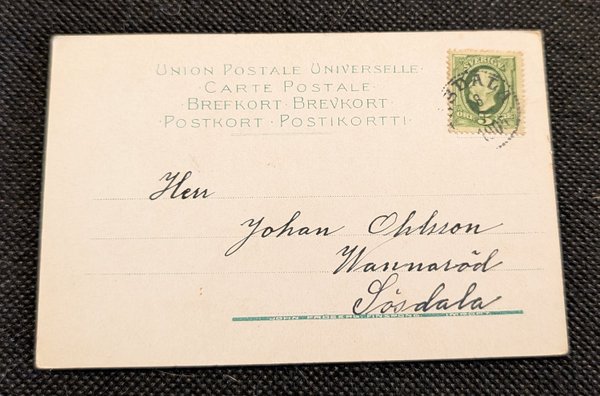 UNION POSTALE UNIVERSELLE·
· CARTE POSTALE ·
· BREFKORT · BREVKORT ·
· POSTKORT · POSTIKORTTI ·
SVERIGE
5
Herr
Johan Ohlsson
Wannaröd
Sösdala
JOHN FROBERG, FINSPONG.